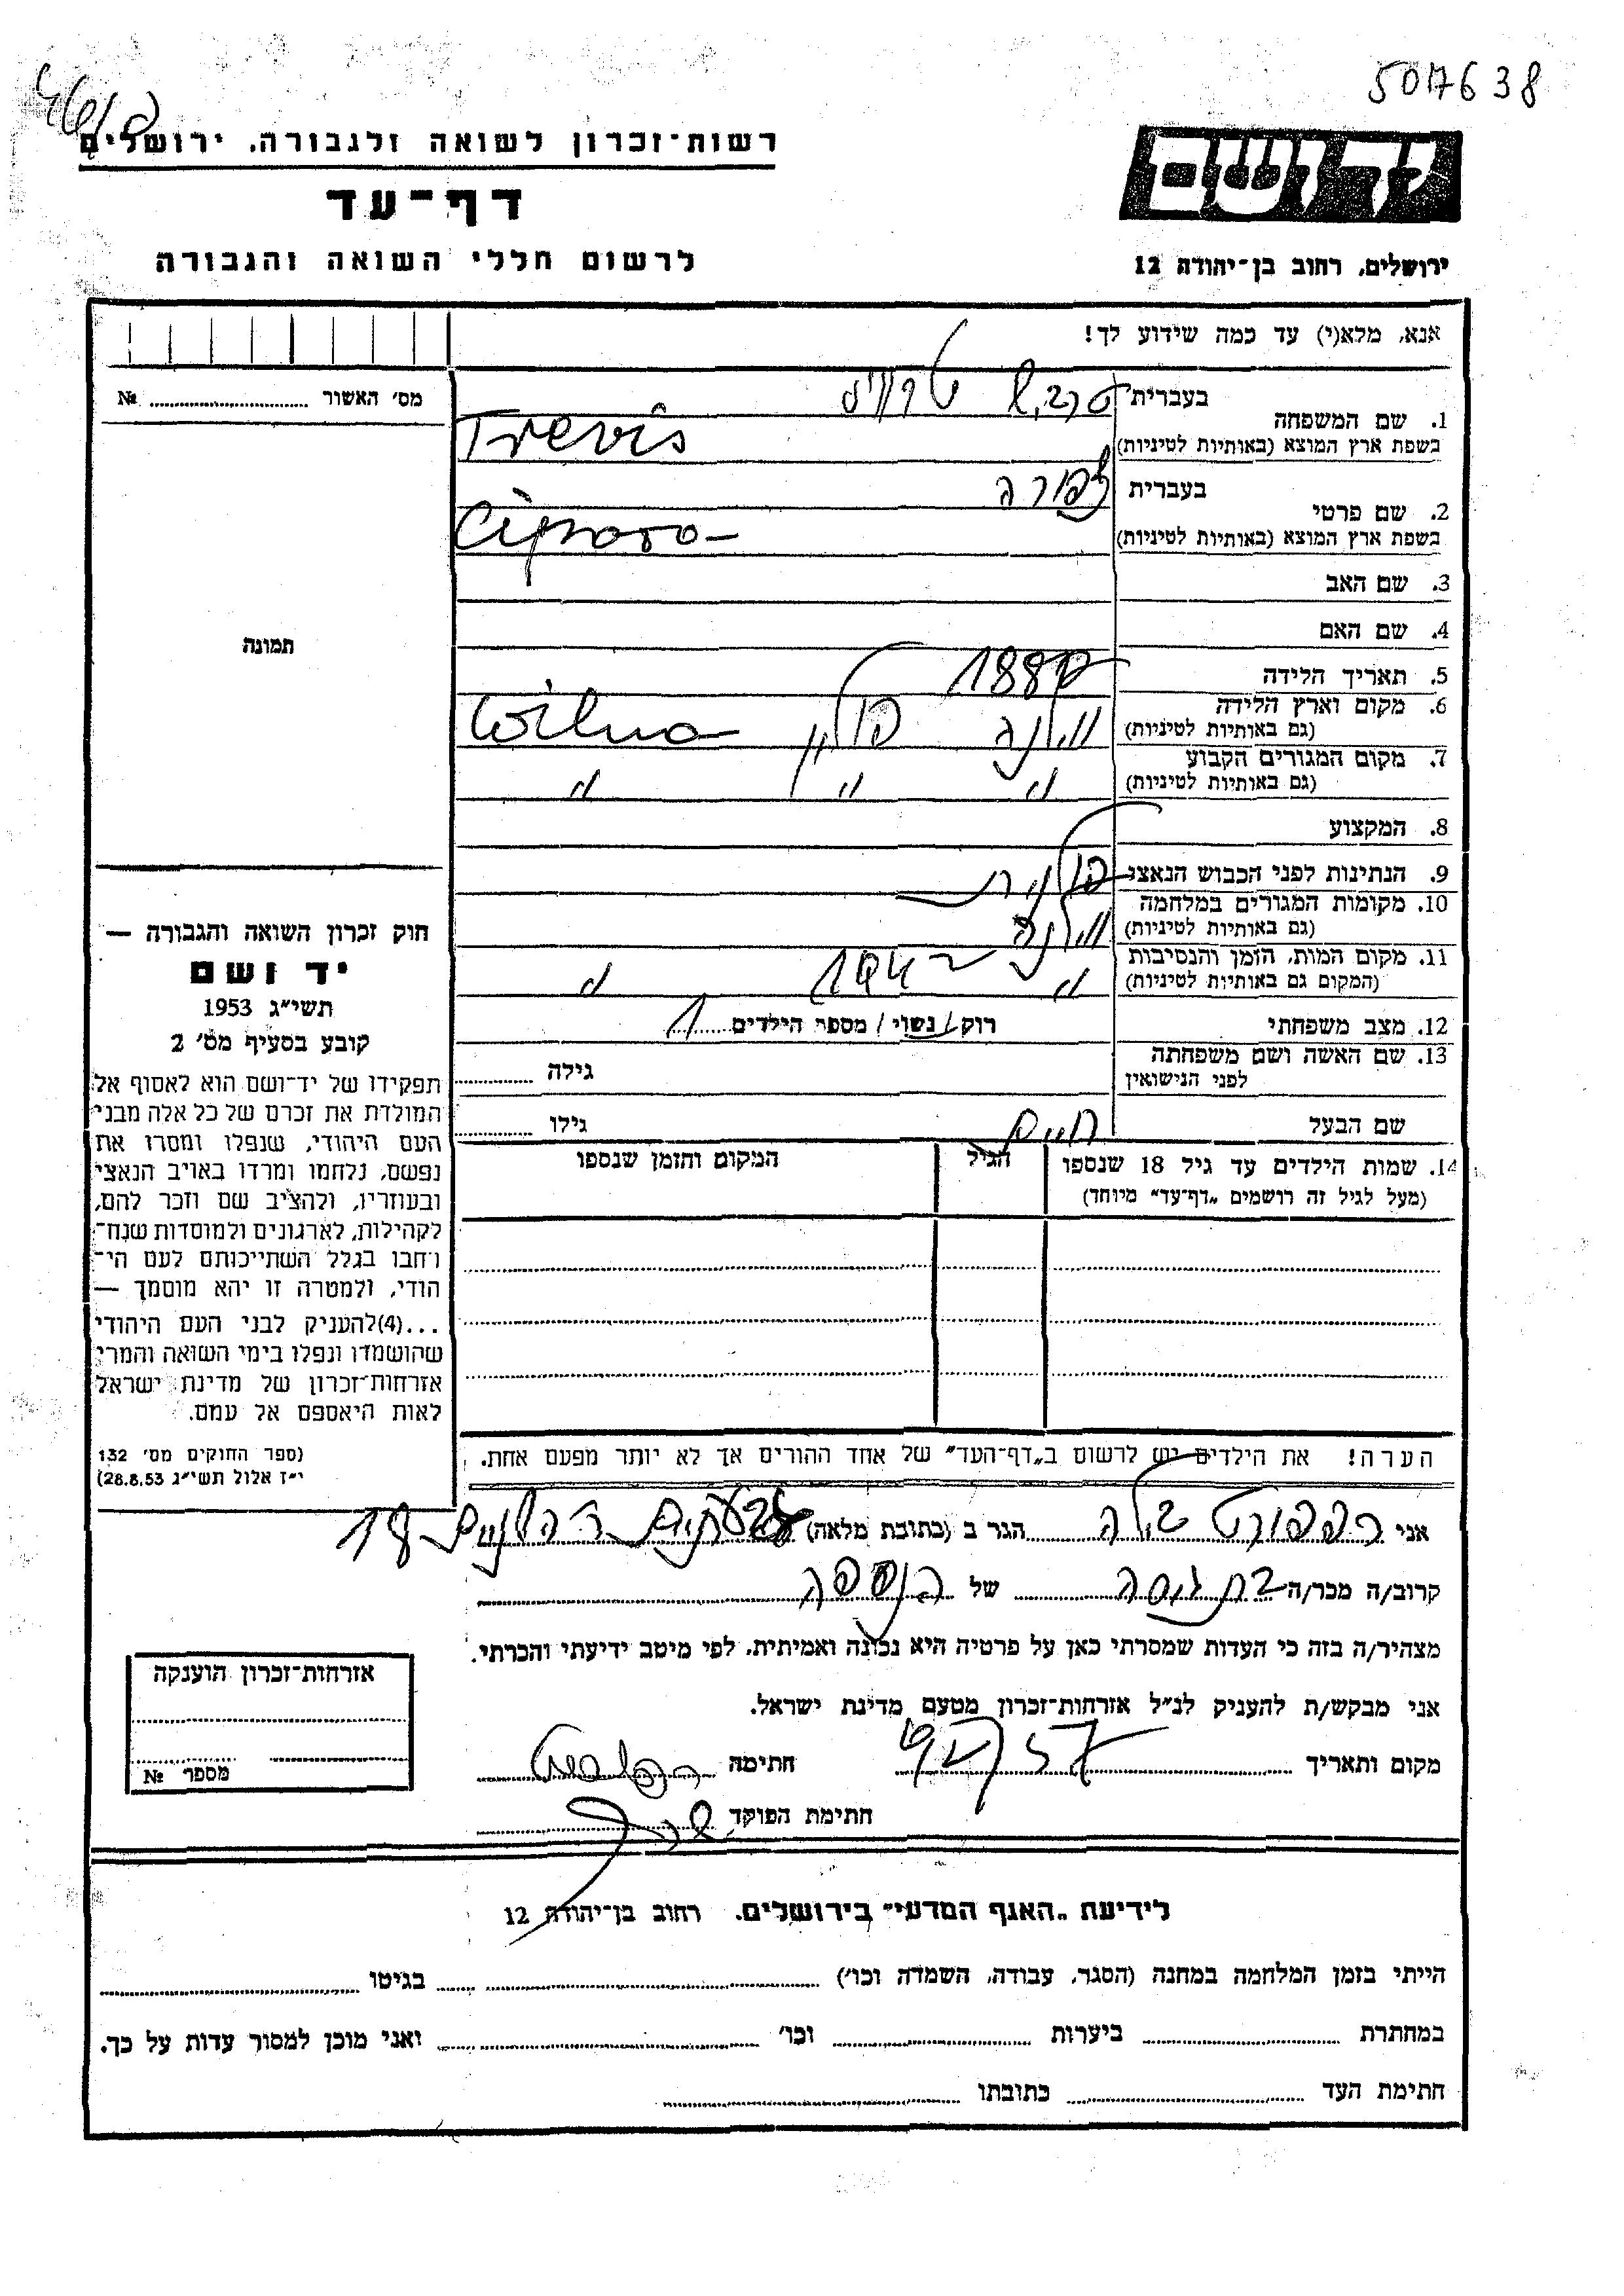 5017638
רשות-זכרון לשואה ולגבורה, ירושלים
דף-עד
לרשום חללי השואה והגבורה
יד ושם
ירושלים, רחוב בן-יהודה 12
אנא, מלא(י) עד כמה שידוע לך!
מס׳ האשור № 
1. שם המשפחה
בעברית טרוויס
בשפת ארץ המוצא (באותיות לטיניות) Trevis
2. שם פרטי
בעברית צפורה
בשפת ארץ המוצא (באותיות לטיניות) Cipora
3. שם האב
4. שם האם
5. תאריך הלידה 1887
6. מקום וארץ הלידה
(גם באותיות לטיניות) ווילנה פולין Wilna
7. מקום המגורים הקבוע
(גם באותיות לטיניות) " " "
8. המקצוע
9. הנתינות לפני הכבוש הנאצי פולנית
10. מקומות המגורים במלחמה
(גם באותיות לטיניות) ווילנה
11. מקום המות, הזמן והנסיבות
(המקום גם באותיות לטיניות) " 1942 "
12. מצב משפחתי רוק/נשוי/מספר הילדים 1
13. שם האשה ושם משפחתה
לפני הנישואין
גילה
שם הבעל חיים גילו
14. שמות הילדים עד גיל 18 שנספו
(מעל לגיל זה רושמים „דף-עד״ מיוחד)
הגיל
המקום והזמן שנספו
הערה! את הילדים יש לרשום ב„דף-העד״ של אחד ההורים אך לא יותר מפעם אחת.
תמונה
חוק זכרון השואה והגבורה —
יד ושם
תשי״ג 1953
קובע בסעיף מס׳ 2
תפקידו של יד-ושם הוא לאסוף אל
המולדת את זכרם של כל אלה מבני
העם היהודי, שנפלו ומסרו את
נפשם, נלחמו ומרדו באויב הנאצי
ובעוזריו, ולהציב שם וזכר להם,
לקהילות, לארגונים ולמוסדות שנח-
רחבו בגלל השתייכותם לעם הי-
הודי, ולמטרה זו יהא מוסמך —
...(4)להעניק לבני העם היהודי
שהושמדו ונפלו בימי השואה והמרי
אזרחות-זכרון של מדינת ישראל
לאות היאספם אל עמם.
(ספר החוקים מס׳ 132
י״ז אלול תשי״ג 28.8.53)
אני רפפורט הגר ב (כתובת מלאה) גבעתים 18
קרוב/ה מכר/ה בת גיסה של הנספה
מצהיר/ה בזה כי העדות שמסרתי כאן על פרטיה היא נכונה ואמיתית, לפי מיטב ידיעתי והכרתי.
אני מבקש/ת להעניק לנ״ל אזרחות-זכרון מטעם מדינת ישראל.
מקום ותאריך חתימה
חתימת הפוקד
אזרחות-זכרון הוענקה
מספר №
לידיעת „האגף המדעי״ בירושלים, רחוב בן-יהודה 12
הייתי בזמן המלחמה במחנה (הסגר, עבודה, השמדה וכו׳) בגיטו
במחתרת ביערות וכו׳ ואני מוכן למסור עדות על כך.
חתימת העד כתובתו